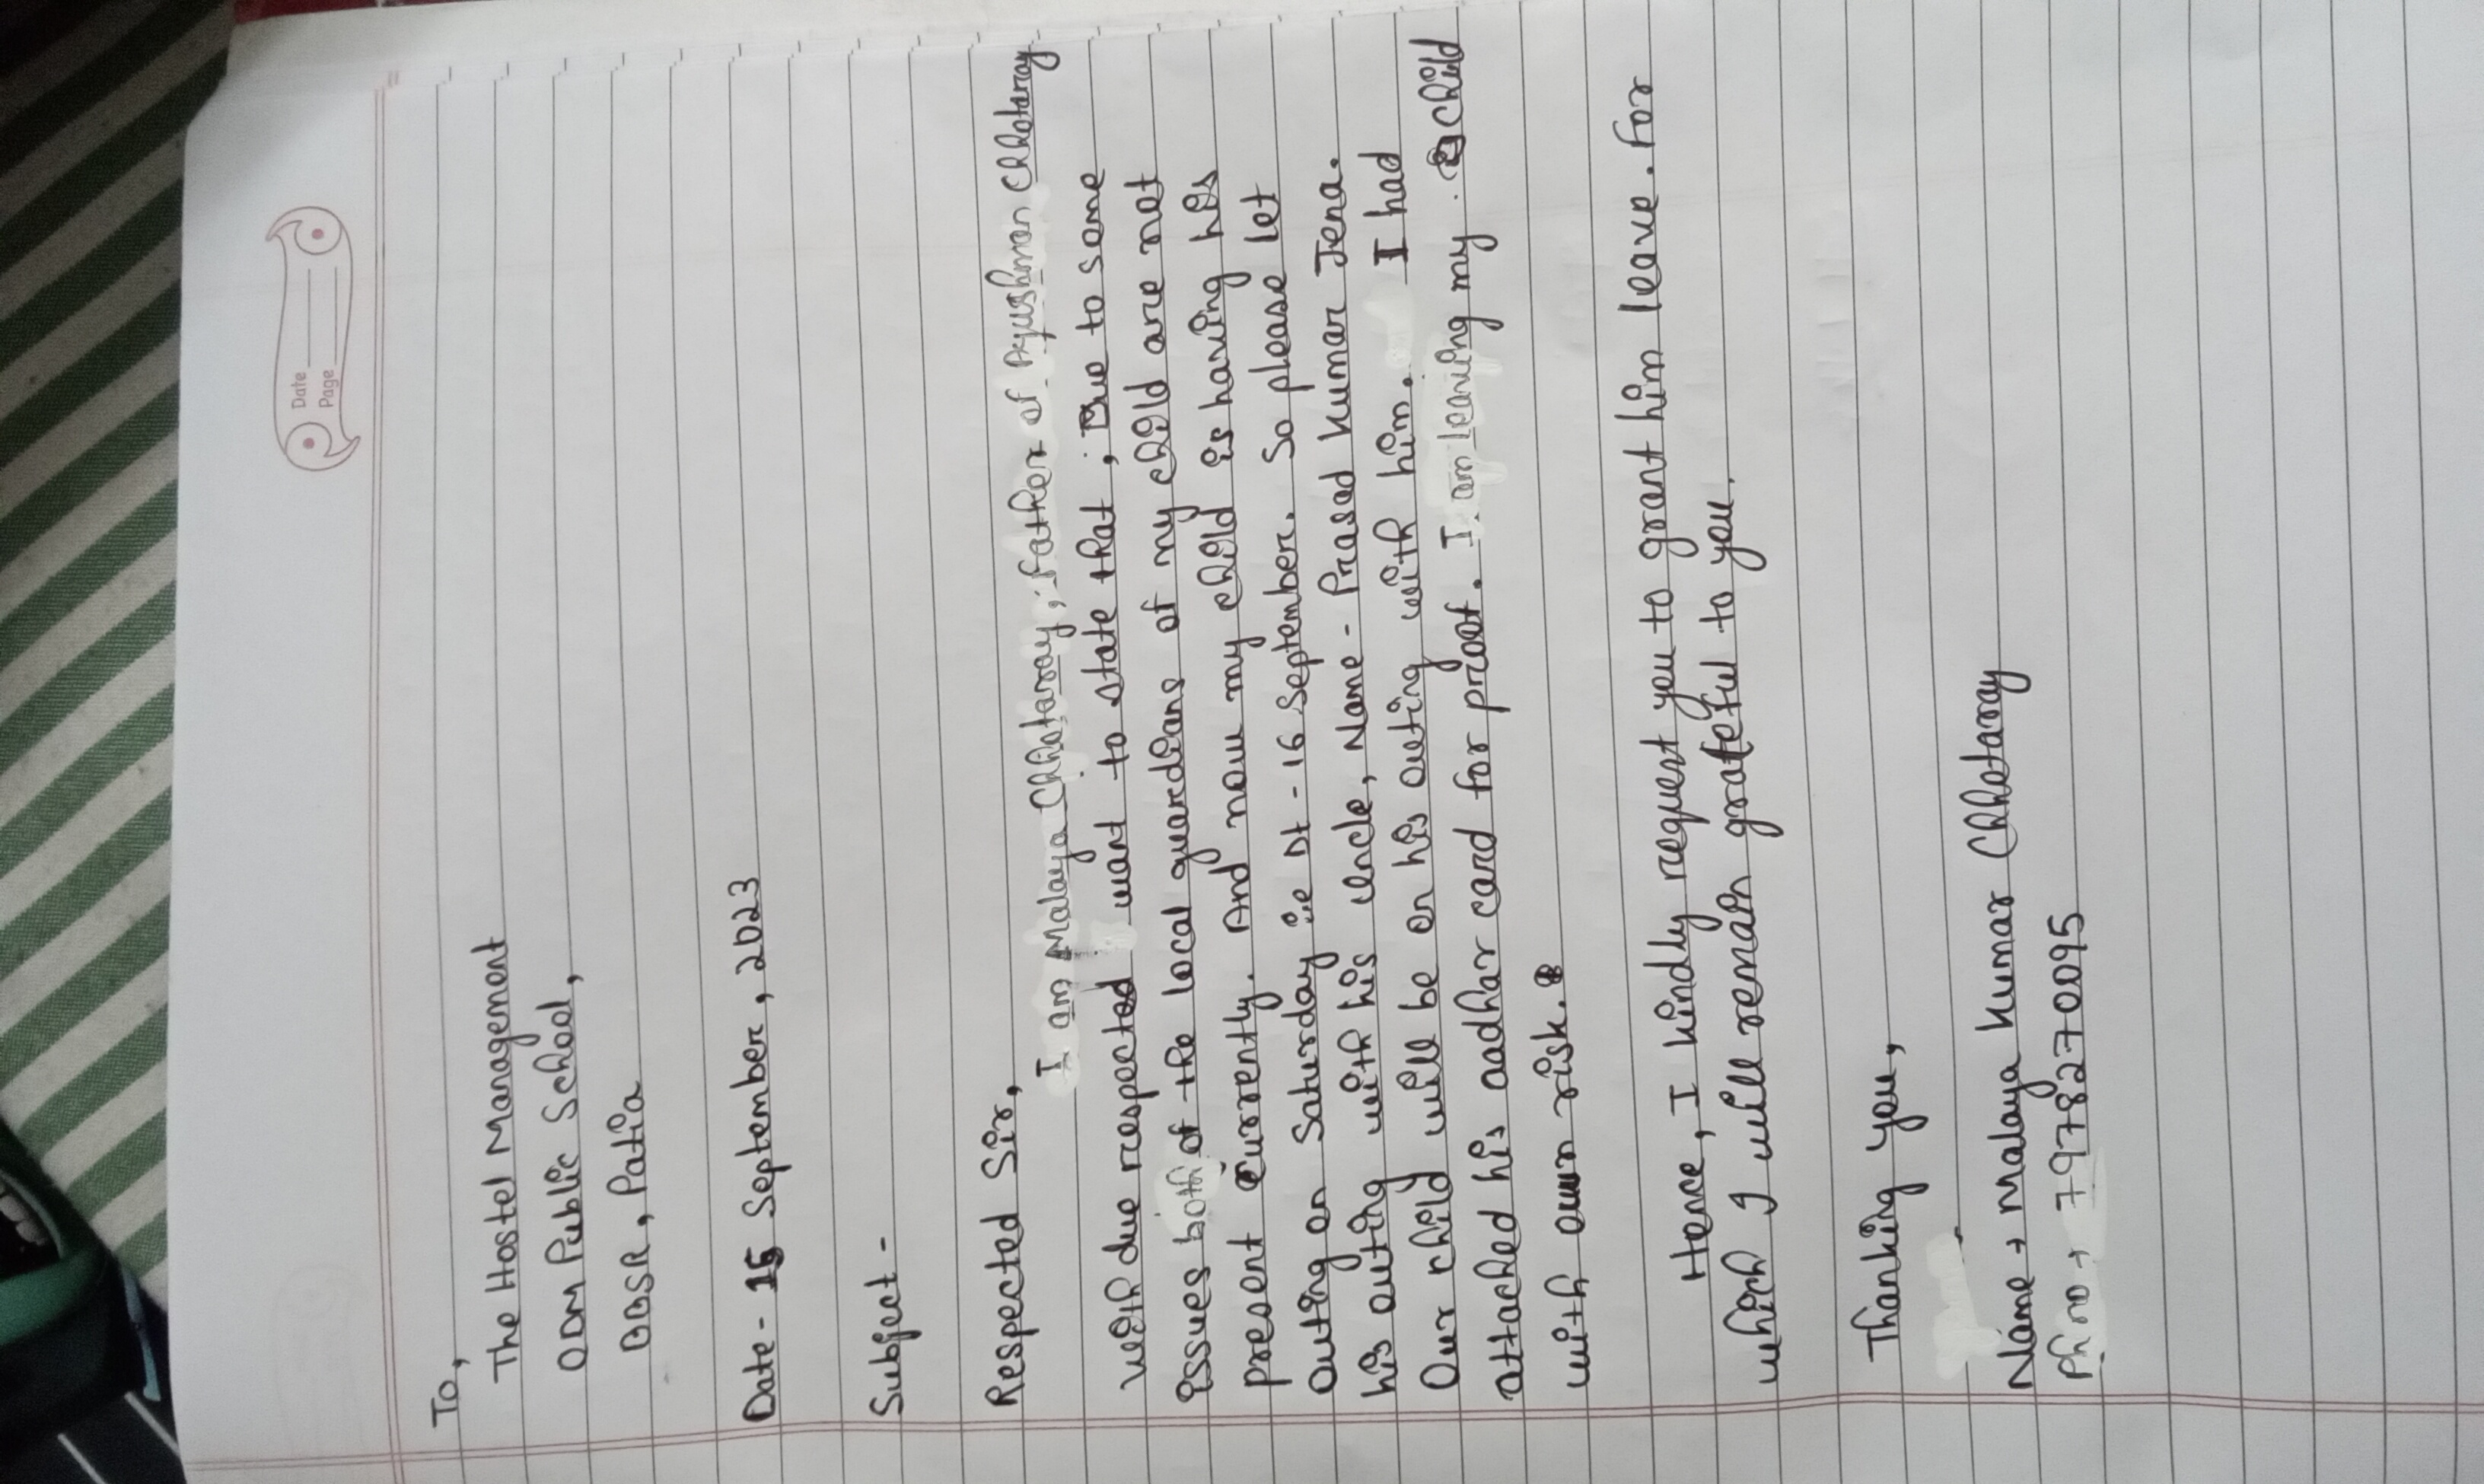 Date
Page
To,
The Hostel Management
ODM Public School,
BBSR, Patia
Date - 15 September, 2023
Subject -
Respected Sir,
I am Malaya Chhotaray, father of Ayushman Chhotaray
with due respected want to state that, Due to some
issues both of the local guardians of my child are not
present currently. And now my child is having his
outing on Saturday i.e Dt - 16 September. So please let
his outing with his uncle, Name - Prasad Kumar Jena.
Our child will be on his outing with him. I had
attached his aadhar card for proof. I am leaving my child
with own risk.
Hence, I kindly request you to grant him leave. For
which I will remain grateful to you.
Thanking you,
Name → Malaya Kumar Chhotaray
Ph no → 7978270095